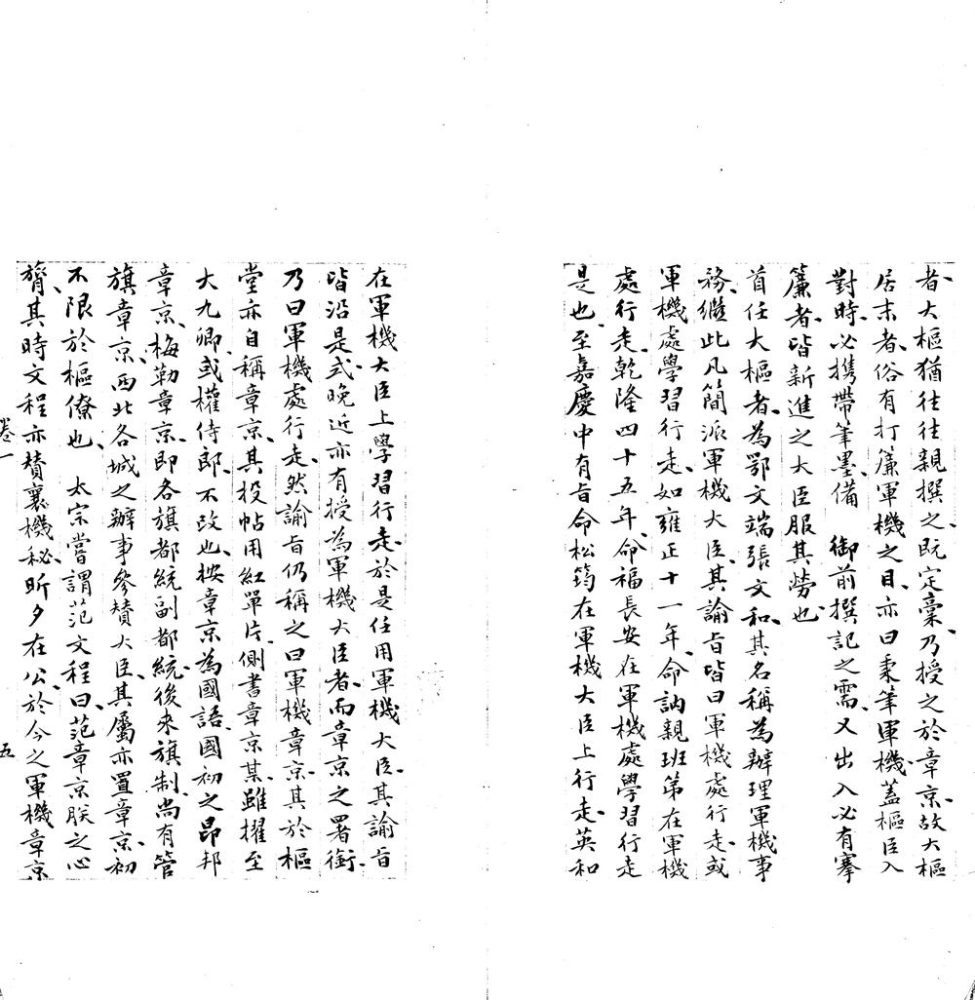 者、大樞猶往往親撰之、既定稾、乃授之於章京、故大樞
居末者、俗有打簾軍機之目、亦曰秉筆軍機、蓋樞臣入
對時、必攜帶筆墨、備　御前撰記之需、又出入必有搴
簾者、皆新進之大臣服其勞也、
首任大樞者、為鄂文端張文和、其名稱為辦理軍機事
務、繼此凡簡派軍機大臣、其諭旨皆曰軍機處行走、或
軍機處學習行走、如雍正十一年、命訥親班第在軍機
處行走、乾隆四十五年、命福長安在軍機處學習行走
是也、至嘉慶中有旨命松筠在軍機大臣上行走、英和
在軍機大臣上學習行走、於是任用軍機大臣、其諭旨
皆沿是式、晚近亦有授為軍機大臣者、而章京之署銜、
乃曰軍機處行走、然諭旨仍稱之曰軍機章京、其於樞
堂亦自稱章京、其投帖用紅單片、側書章京某、雖擢至
大九卿、或權侍郎、不改也、按章京為國語、國初之昂邦
章京、梅勒章京、即各旗都統副都統、後來旗制、尚有管
旗章京、西北各城之辦事參贊大臣、其屬亦置章京、初
不限於樞僚也、　太宗嘗謂范文程曰、范章京朕之心
膂、其時文程亦贊襄機秘、昕夕在公、於今之軍機章京
卷一
五